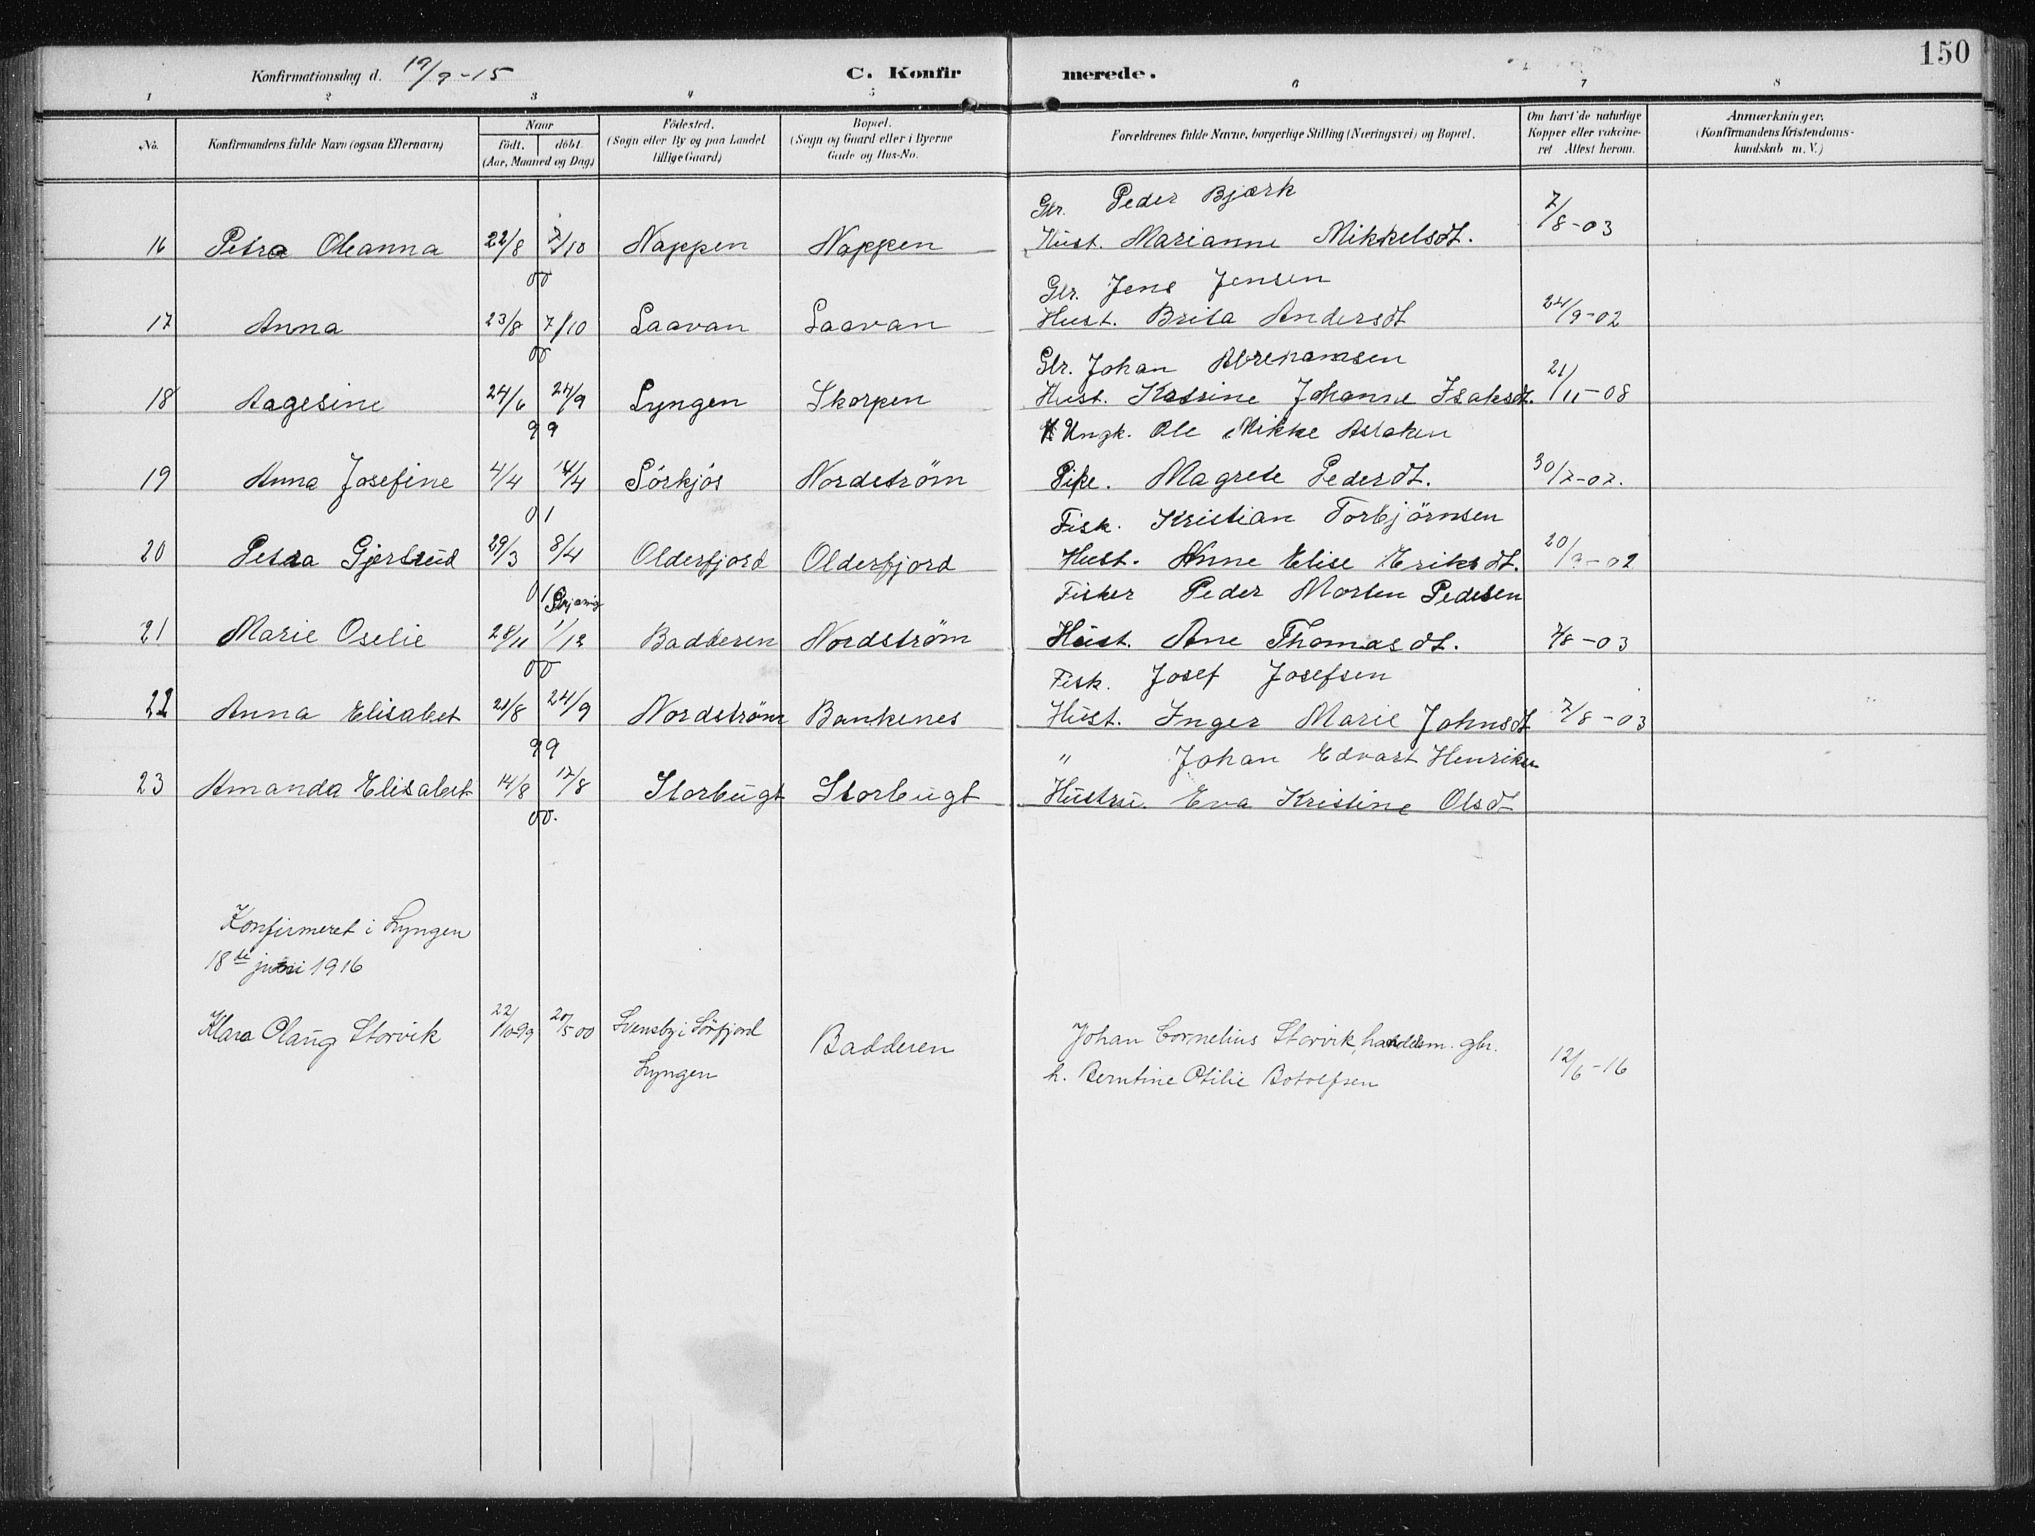 150
Konfirmationsdag d. 19/9-15 C. Konfirmerede.
1 2 3 4 5 6 7 8
No. Konfirmandens fulde Navn (ogsaa Efternavn) Naar født. døbt. (Aar, Maaned og Dag) Fødested. (Sogn eller By og paa Landet tillige Gaard) Bopæl. (Sogn og Gaard eller i Byerne Gade og Hus-No. Forældrenes fulde Navne, borgerlige Stilling (Næringsvei) og Bopæl. Om havt de naturlige Kopper eller vakcineret Attest herom. Anmærkninger. (Konfirmandens Kristendomskundskab m. V.)
Gbr. Peder Bjørk
16 Petra Oleanna 22/8 7/10 Nappen Nappen Hust. Marianne Mikkelsdt. 7/8-03
00
Gbr. Jens Jensen
17 Anna 23/8 7/10 Laavan Laavan Hust. Brita Andersdt 24/9-02
00
Gbr. Johan Abrehamsen
18 Aagesine 24/6 24/9 Lyngen Skorpen Hust. Katrine Johanne Isaksdt. 21/11-08
99
Ungk. Ole Mikke Aslaksen
19 Anna Josefine 4/4 14/4 Sörkjós Nordstrøm Pike. Magrete Pedersdt. 30/7-02.
01
Fisk. Kristian Torbjörnsen
20 Petra Gjertrud 29/3 8/4 Olderfjord Olderfjord Hust. Anne Elise Eriksdt. 20/9-02
01
Fisker Peder Morten Pedersen
21 Marie Oselie 28/11 1/12 Badderen Nordstrøm Hust. Ane Thomasdt. 7/8-03
00
Fisk. Josef Josefsen
22 Anna Elisabet 21/8 24/9 Nordstrøm Bankenes Hust. Inger Marie Johnsdt 7/8-03
99
" Johan Edvart Henriksen
23 Amanda Elisabet 14/8 17/8 Storbugt Storbugt Hustru Eva Kristine Olsd
00.
Konfirmeret i Lyngen
18de juni 1916
Klara Olaug Storvik 22/10 99 20/5 00 Svensby i Sörfjord Badderen Johan Cornelius Storvik, handelsm. gbr.
Lyngen h. Berntine Otilie Botolfsen 12/6-16